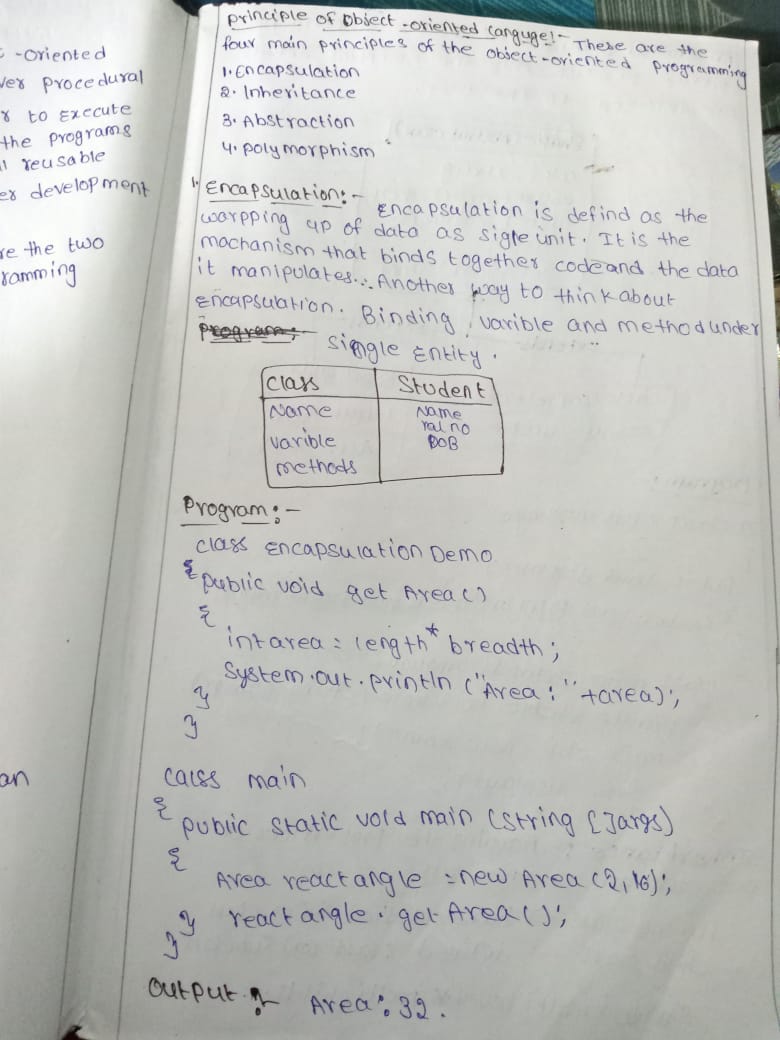 -oriented
ver procedural
to Execute
the programs
reusable
er development
re the two
ramming
an
principle of object-oriented languge:- These are the
four main principles of the object-oriented programming
1. Encapsulation
2. Inheritance
3. Abstraction
4. polymorphism
1. Encapsulation:- Encapsulation is defind as the
warpping up of data as sigle unit. It is the
machanism that binds together code and the data
it manipulates... Another way to think about
Encapsulation. Binding varible and method under
Program:- single Entity.
Class Student
Name Name
ral no
varible DOB
methods
Program:-
class Encapsulation Demo
{ public void get Area()
{
int area = length * breadth;
System.out.println ("Area:" +area);
}
}
calss main
{ public static void main (string []args)
{
Area reactangle = new Area (2,16);
} reactangle. get Area();
}
output:- Area: 32.